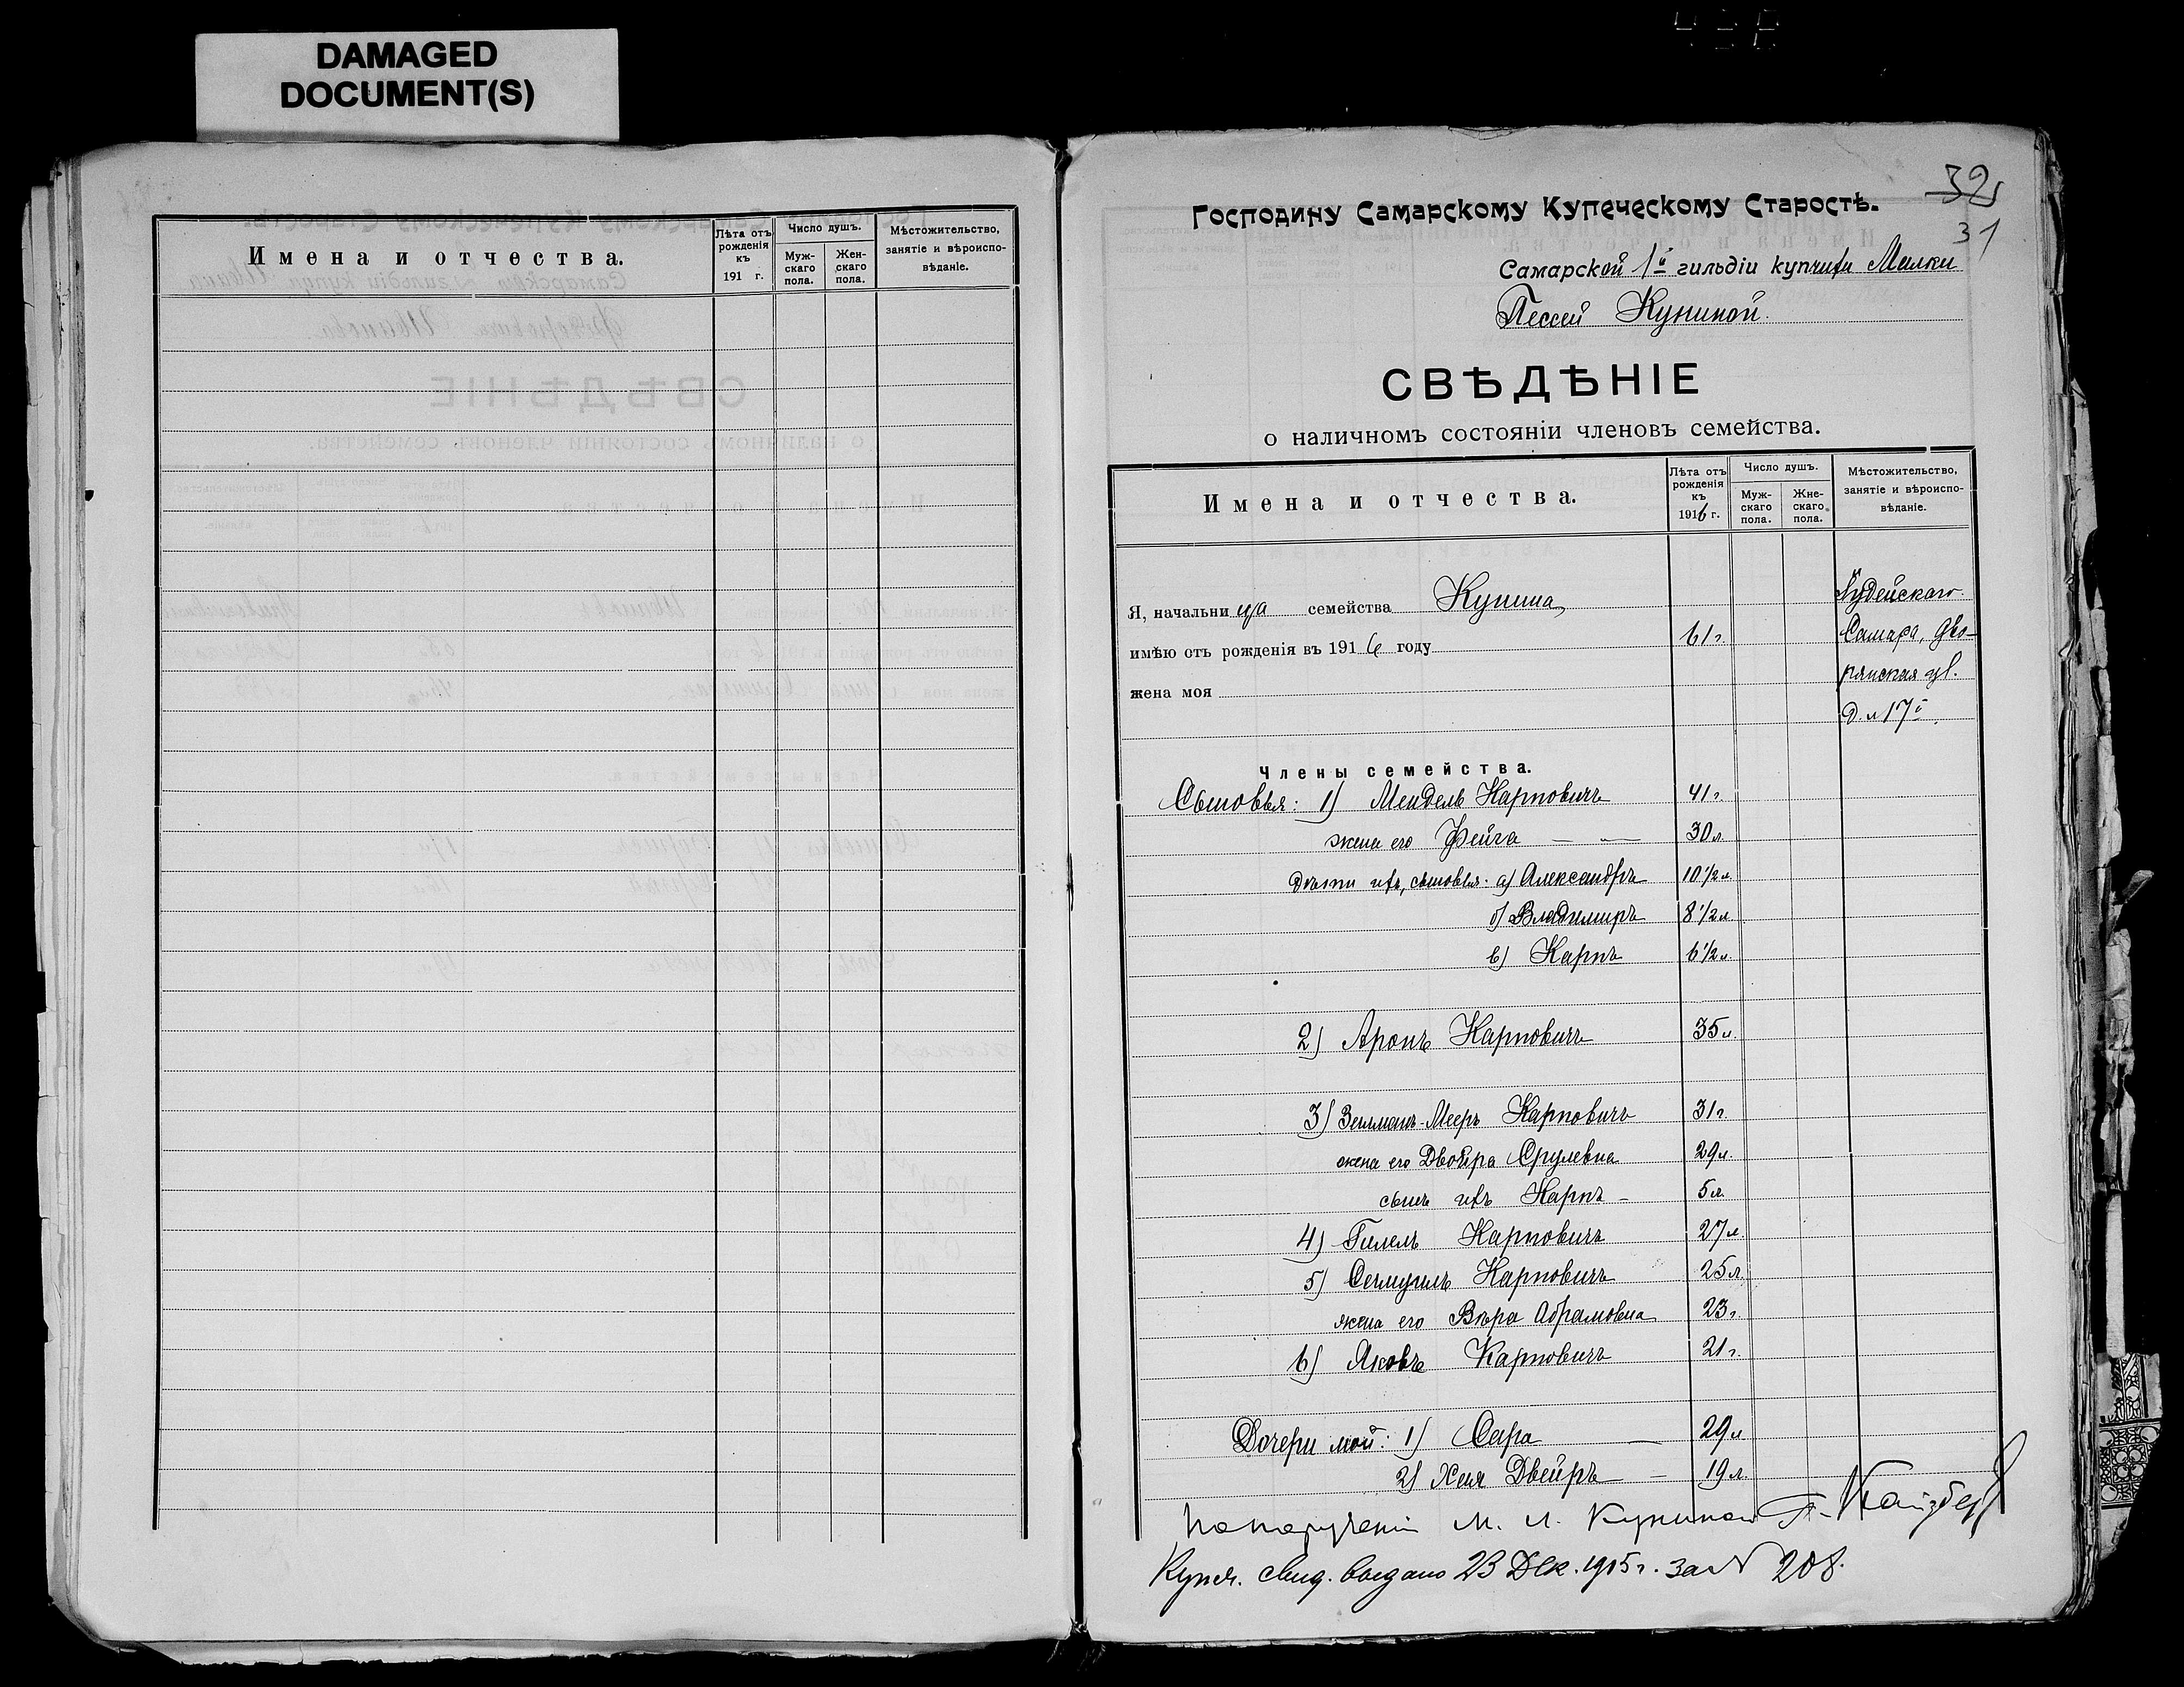 DAMAGED
DOCUMENT(S)
Имена и отчества.
Лѣта отъ рожденія къ 191 г.
Число душъ.
Мужскаго пола.
Женскаго пола.
Мѣстожительство, занятіе и вѣроисповѣданіе.
32
31
Господину Самарскому Купеческому Старостѣ.
Самарской 1й гильдіи купчихи Малки
Пессей Куниной.
СВѢДѢНІЕ
о наличномъ состояніи членовъ семейства.
Имена и отчества.
Лѣта отъ рожденія къ 1916 г.
Число душъ.
Мужскаго пола.
Жнескаго пола.
Мѣстожительство, занятіе и вѣроисповѣданіе.
Я, начальница семейства Кунина
Іудейскаго
имѣю отъ рожденія въ 1916 году 61 г. Самара, Дво-
жена моя рянская ул.
д. № 17й.
Члены семейства.
Сыновья: 1) Мендель Карповичъ 41 г.
жена его Фейга — — 30 л.
Дѣти ихъ, сыновья: а) Александръ 10 1/2 л.
б) Владимиръ 8 1/2 л.
в) Карпъ 6 1/2 л.
2) Аронъ Карповичъ 35 л.
3) Зельманъ-Мееръ Карповичъ 31 г.
жена его Двойра Срулевна 29 л.
сынъ ихъ Карпъ — 5 л.
4) Гилель Карповичъ 27 л.
5) Самуилъ Карповичъ 25 л.
жена его Вѣра Абрамовна 23 г.
6) Яковъ Карповичъ 21 г.
Дочери мои: 1) Сара — 29 л.
2) Хая Двейръ — 19 л.
По порученію М. П. Куниной
Купеч. свид. выдано 23 Дек. 1915 г. за № 208.